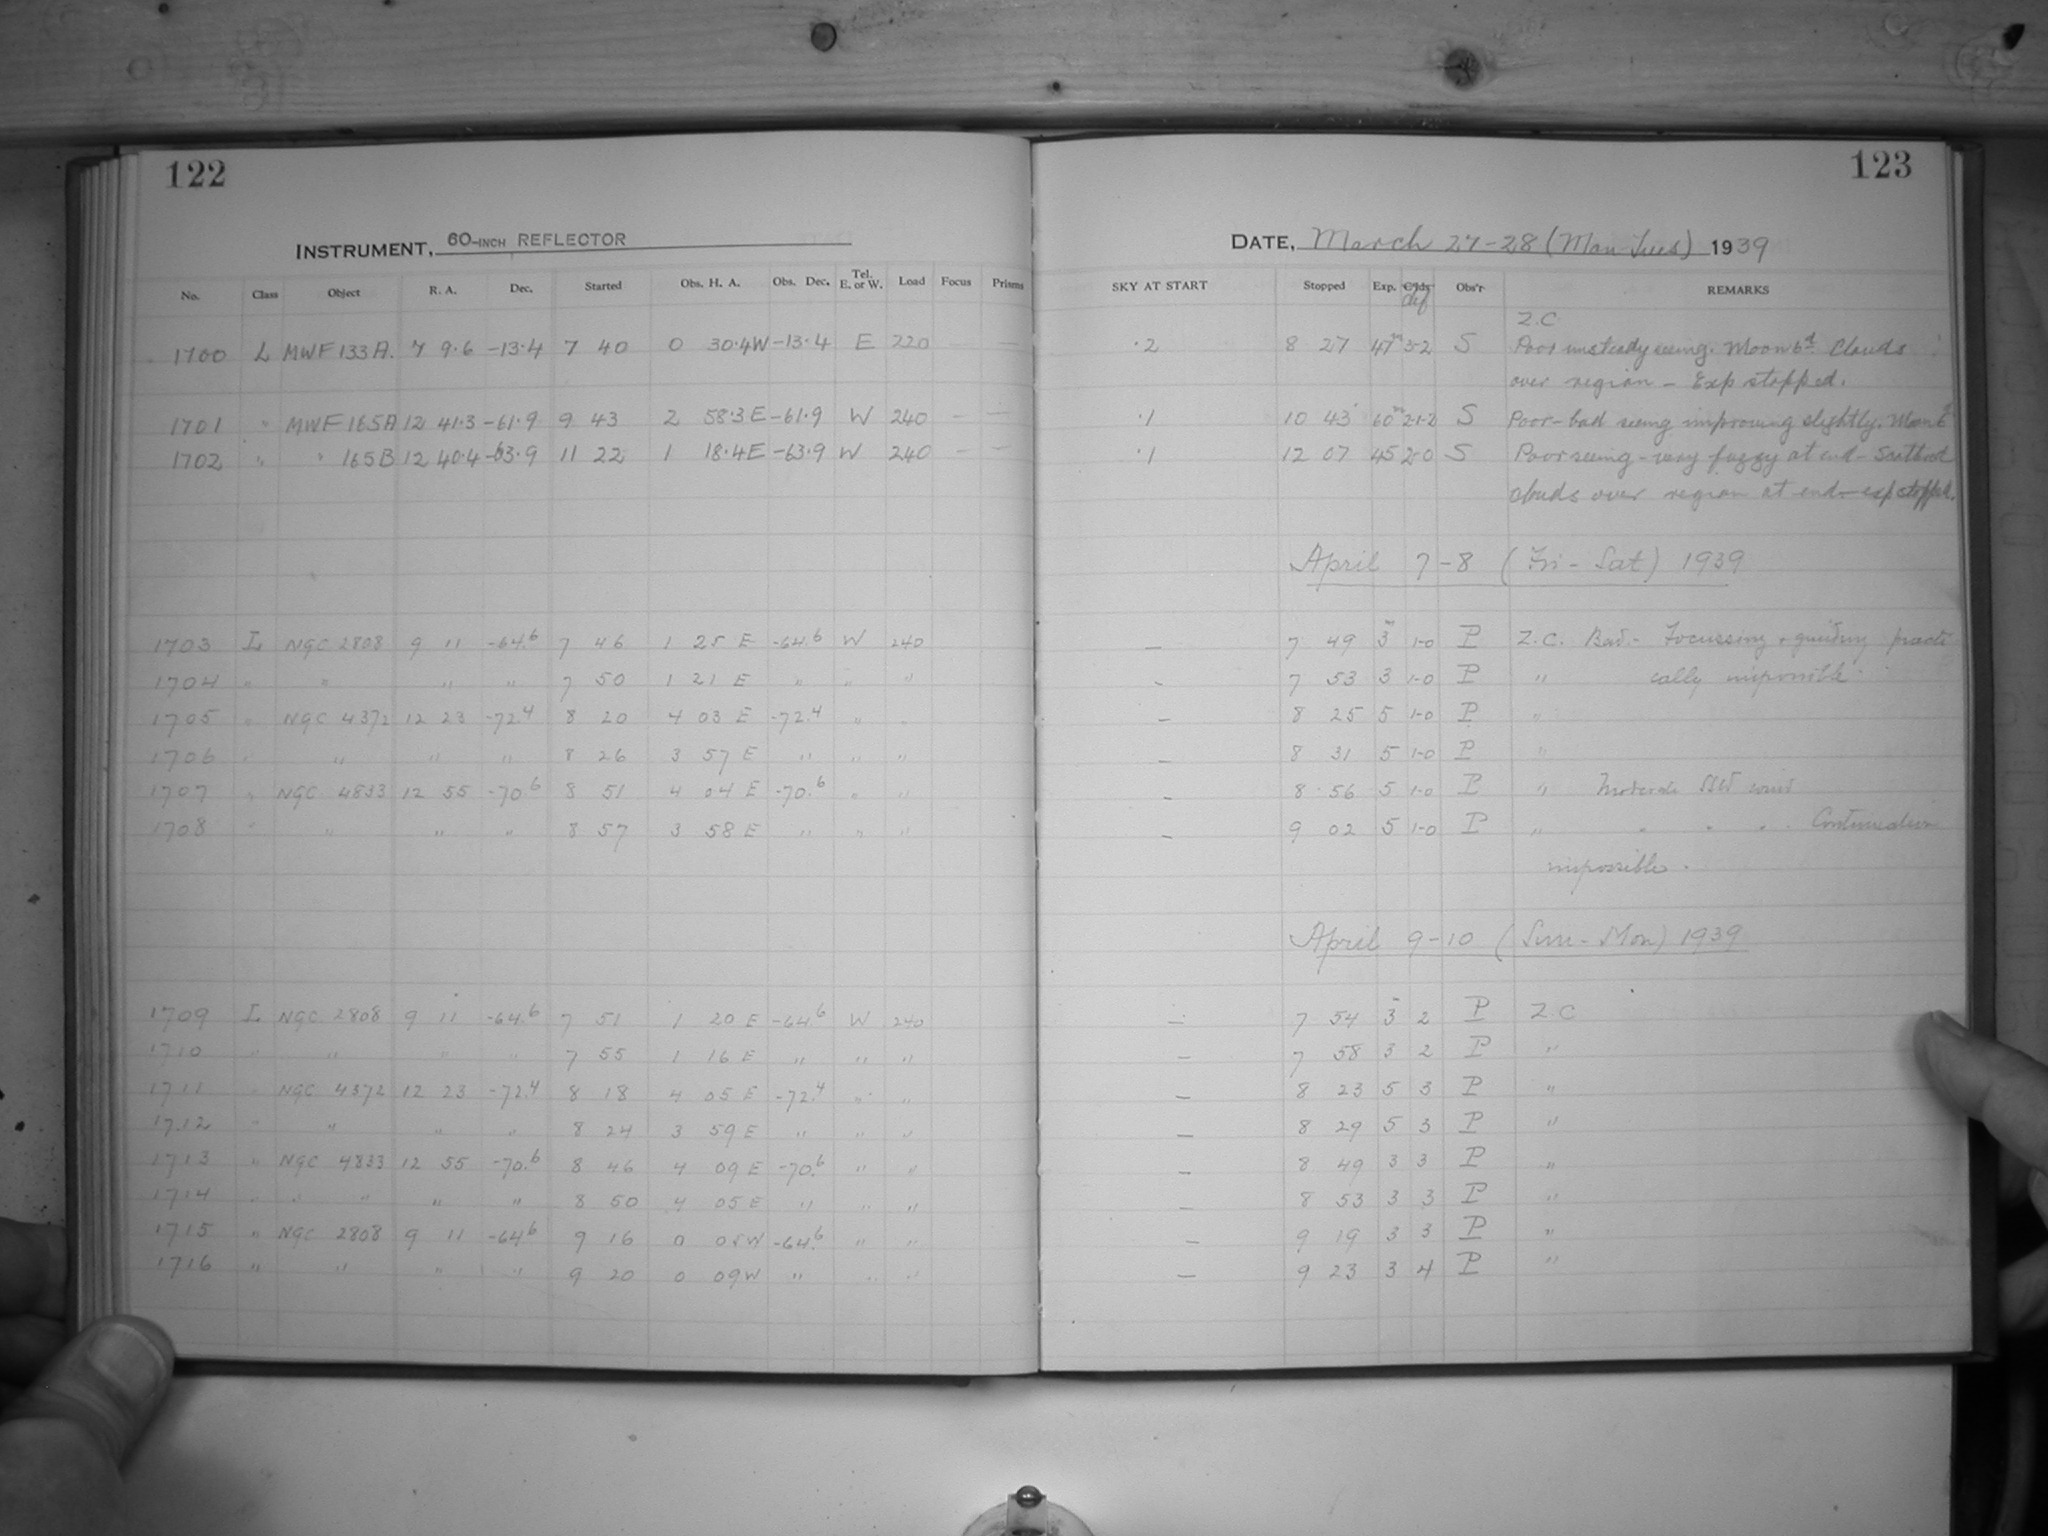 122
INSTRUMENT, 60-INCH REFLECTOR
No. Class Object R. A. Dec. Started Obs. H. A. Obs. Dec. Tel. E. or W. Load Focus Prisms
1700 L MWF 133A. 7 9.6 -13.4 7 40 0 30.4W -13.4 E 220 — —
1701 " MWF 165A 12 41.3 -61.9 9 43 2 58.3E -61.9 W 240 — —
1702 " " 165B 12 40.4 -63.9 11 22 1 18.4E -63.9 W 240 — —
1703 L NGC 2808 9 11 -64.6 7 46 1 25 E -64.6 W 240
1704 " " " " 7 50 1 21 E " " "
1705 " NGC 4372 12 23 -72.4 8 20 4 03 E -72.4 " "
1706 " " " " 8 26 3 57 E " " "
1707 " NGC 4833 12 55 -70.6 8 51 4 04 E -70.6 " "
1708 " " " " 8 57 3 58 E " " "
1709 L NGC 2808 9 11 -64.6 7 51 1 20 E -64.6 W 240
1710 " " " " 7 55 1 16 E " " "
1711 " NGC 4372 12 23 -72.4 8 18 4 05 E -72.4 " "
1712 " " " " 8 24 3 59 E " " "
1713 " NGC 4833 12 55 -70.6 8 46 4 09 E -70.6 " "
1714 " " " " " 8 50 4 05 E " " "
1715 " NGC 2808 9 11 -64.6 9 16 0 05W -64.6 " "
1716 " " " " 9 20 0 09W " " "
123
DATE, March 27-28 (Mon-Tues) 1939
SKY AT START Stopped Exp. Obs'r REMARKS
def
Z.C
.2 8 27 47m 5-2 S Poor unsteady seeing. Moon 6d. Clouds
over region - Exp stopped.
.1 10 43 60m 2-1-2 S Poor-bad seeing improving slightly. Moon 6d
.1 12 07 45 2-0 S Poor seeing - very fuzzy at end - Scattered
clouds over region at end - exp stopped.
April 7-8 (Fri-Sat) 1939
— 7 49 3m 1-0 P Z.C. Bad - Focussing + guiding practi
- 7 53 3 1-0 P " cally impossible.
— 8 25 5 1-0 P "
— 8 31 5 1-0 P "
- 8 56 5 1-0 P " Moderate wind
— 9 02 5 1-0 P " " " " . Continuation
impossible.
April 9-10 (Sun-Mon) 1939
— 7 54 3m 2 P Z.C
— 7 58 3 2 P "
— 8 23 5 3 P "
— 8 29 5 3 P "
— 8 49 3 3 P "
— 8 53 3 3 P "
— 9 19 3 3 P "
— 9 23 3 4 P "